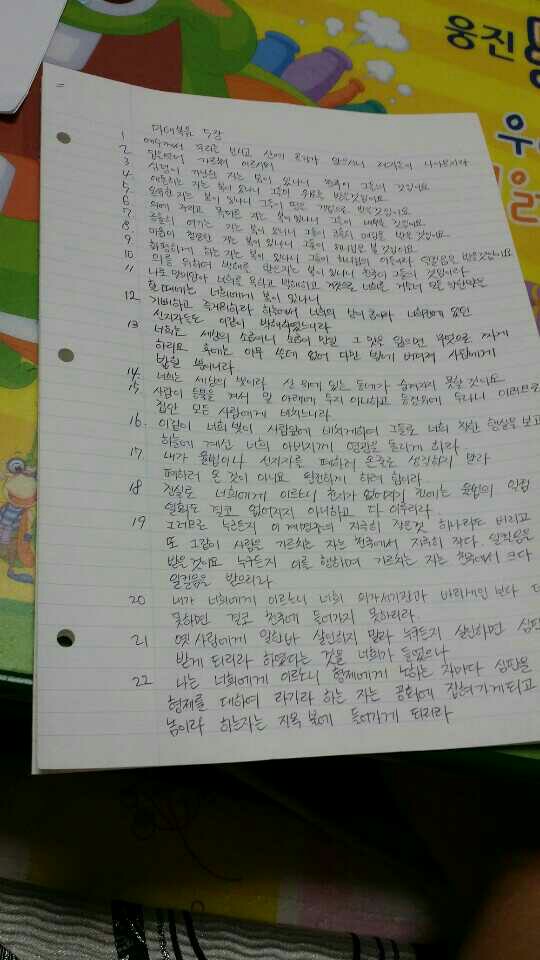 웅진
우
일
1 마태복음 5장
2 예수께서 무리를 보시고 산에 올라가 앉으시니 제자들이 나아온지라
입을열어 가르쳐 이르시되
3 심령이 가난한 자는 복이 있나니 천국이 그들의 것임이요
4 애통하는 자는 복이 있나니 그들이 위로를 받을것임이요
5 온유한 자는 복이 있나니 그들이 땅을 기업으로 받을것임이요
6 의에 주리고 목마른 자는 복이있나니 그들이 배부를 것임이요
7 긍휼히 여기는 자는 복이 있나니 그들이 긍휼히 여김을 받을 것임이요
8 마음이 청결한 자는 복이 있나니 그들이 하나님을 볼 것임이요
9 화평하게 하는 자는 복이 있나니 그들이 하나님의 아들이라 일컬음을 받을것임이요
10 의를 위하여 박해를 받은자는 복이 있나니 천국이 그들의 것임이라
11 나로 말미암아 너희를 욕하고 박해하고 거짓으로 너희를 거슬러 모든 악한말을
할 때에는 너희에게 복이 있나니
12 기뻐하고 즐거워하라 하늘에서 너희의 상이 큼이라 너희전에 있던
선지자들도 이같이 박해하였느니라
13 너희는 세상의 소금이니 소금이 만일 그 맛을 잃으면 무엇으로 짜게
하리요 후에는 아무 쓸데 없어 다만 밖에 버려져 사람에게
밟힐 뿐이니라
14 너희는 세상의 빛이라 산 위에 있는 동네가 숨겨지지 못할 것이요
15 사람이 등불을 켜서 말 아래에 두지 아니하고 등경위에 두나니 이러므로
집안 모든 사람에게 비치느니라
16. 이같이 너희 빛이 사람앞에 비치게하여 그들로 너희 착한 행실을 보고
하늘에 계신 너희 아버지께 영광을 돌리게 하라
17. 내가 율법이나 선지자를 폐하러 온줄로 생각하지 말라
폐하러 온 것이 아니요 완전하게 하려 함이라
18 진실로 너희에게 이르노니 천지가 없어지기 전에는 율법의 일점
일획도 결코 없어지지 아니하고 다 이루리라
19 그러므로 누구든지 이 계명중의 지극히 작은것 하나라도 버리고
또 그같이 사람을 가르치는 자는 천국에서 지극히 작다 일컬음을
받을것이요 누구든지 이를 행하며 가르치는 자는 천국에서 크다
일컬음을 받으리라
20 내가 너희에게 이르노니 너희 의가서기관과 바리새인 보다 더
못하면 결코 천국에 들어가지 못하리라
21 옛 사람에게 말한바 살인하지 말라 누구든지 살인하면 심판
받게 되리라 하였다는 것을 너희가 들었으나
22 나는 너희에게 이르노니 형제에게 노하는 자마다 심판을
형제를 대하여 라가라 하는 자는 공회에 잡혀가게되고
놈이라 하는자는 지옥 불에 들어가게 되리라